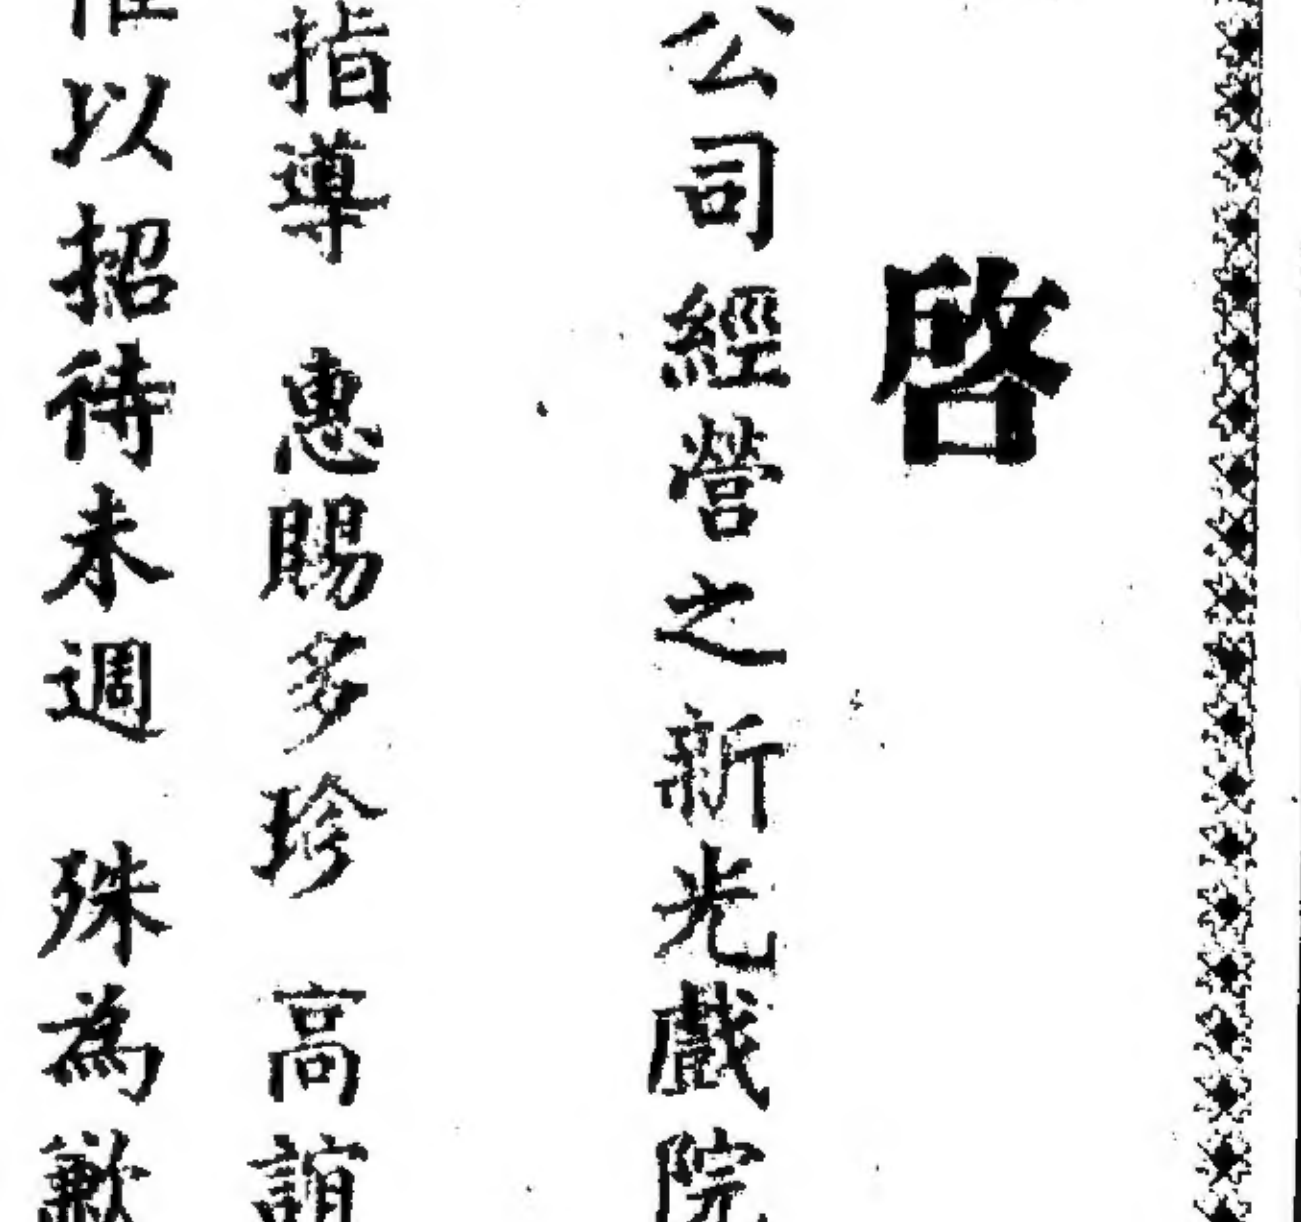 啓
公司經營之新光戲院
指導　惠賜多珍　高誼
以招待未週　殊為歉